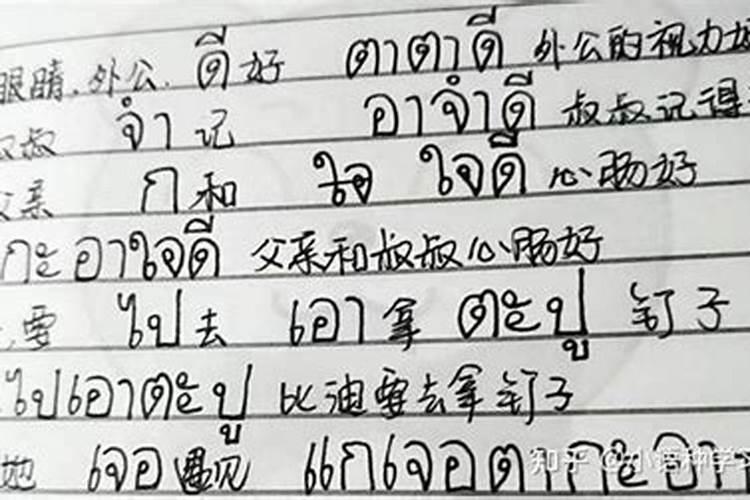 眼睛.外公. ดี 好 ตาตาดี 外公的视力好
叔叔 จำ 记 อาจำดี 叔叔记得
父亲 ก 和 ใจ ใจดี 心肠好
กะอาใจดี 父亲和叔叔心肠好
要 ไป 去 เอา 拿 ตะปู 钉子
ไปเอาตะปู 比油要去拿钉子
她 เจอ 遇见 แกเจอตากะอา
知乎